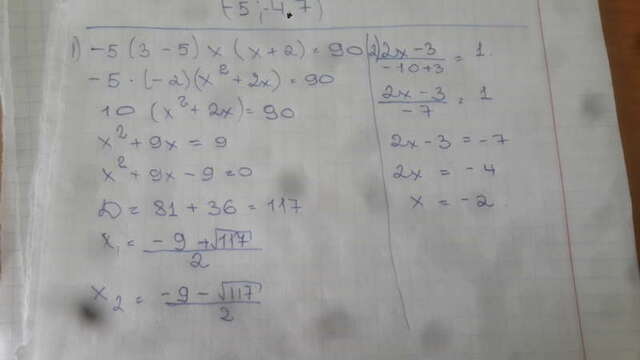 (-5; -4, 7)
1) -5 (3 - 5) x (x + 2) = 90
-5 · (-2)(x² + 2x) = 90
10 (x² + 2x) = 90
x² + 9x = 9
x² + 9x - 9 = 0
D = 81 + 36 = 117
x₁ = (-9 + √117) / 2
x₂ = (-9 - √117) / 2
2) (2x - 3) / (-10 + 3) = 1
(2x - 3) / (-7) = 1
2x - 3 = -7
2x = -4
x = -2